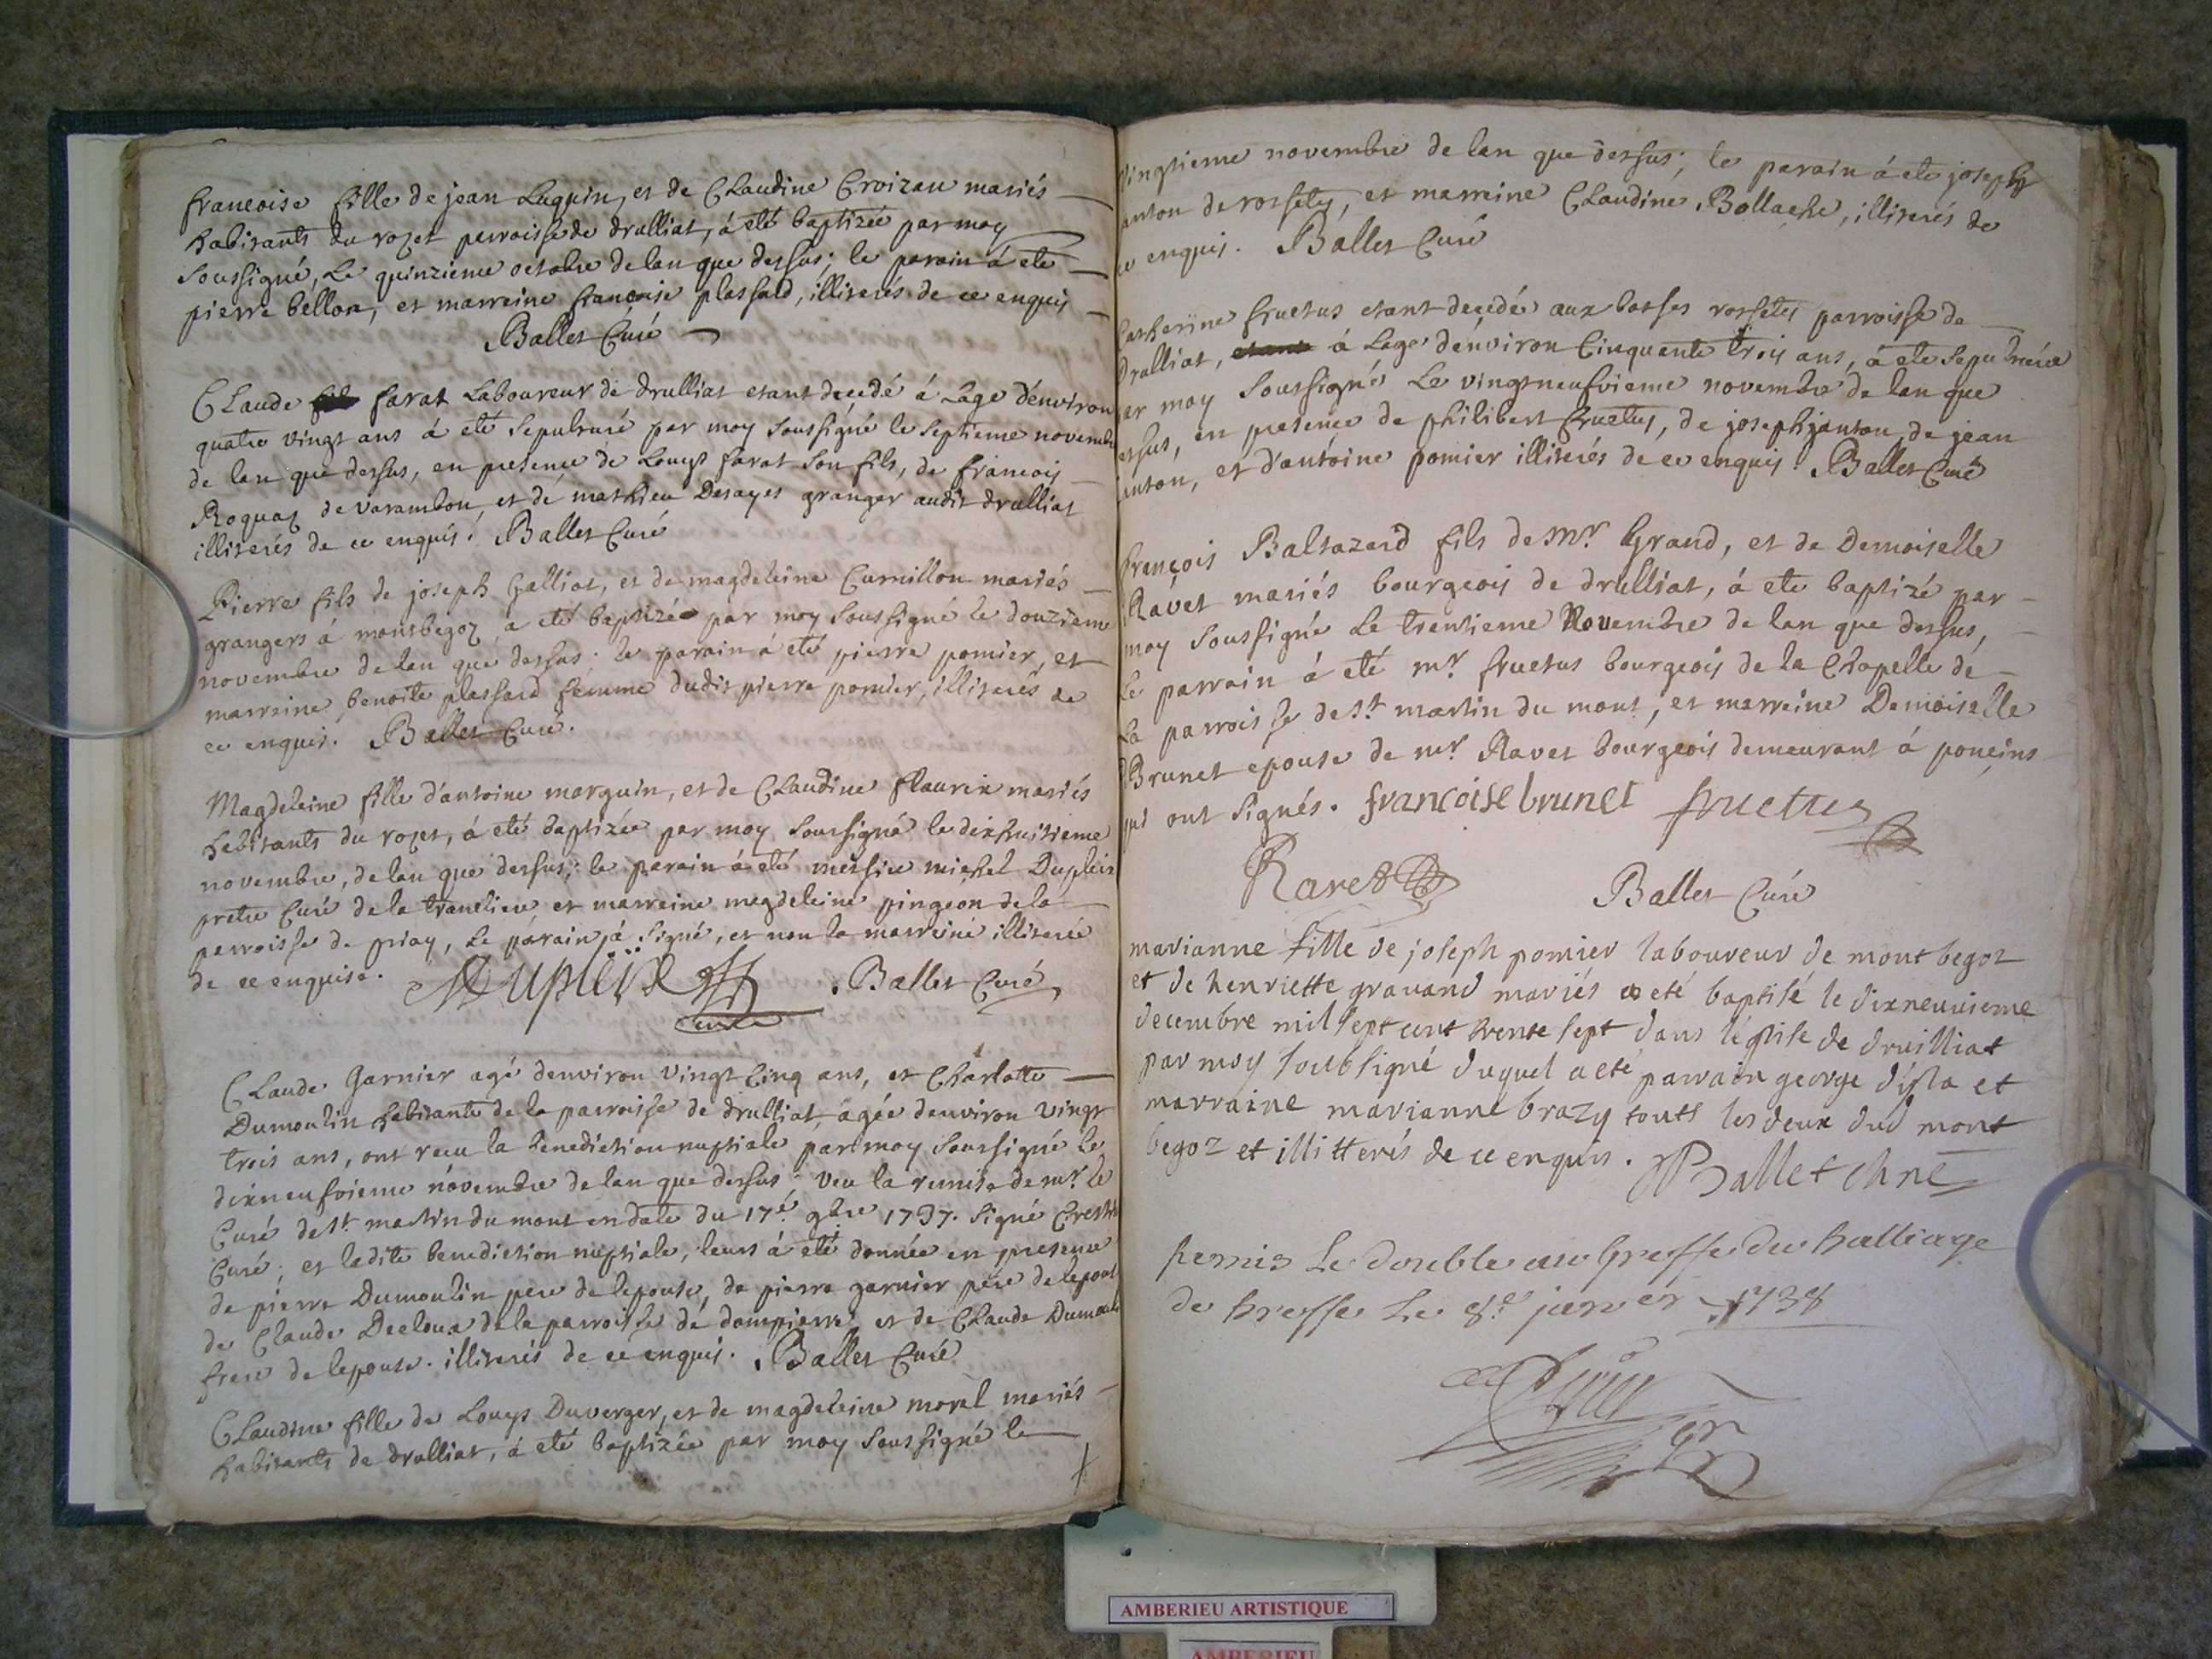 francoise fille de jean Luquin, et de Claudine Croizau mariés
habitants du rozet parroisse de drulliat, á eté baptizée par moy
soussigné, Le quinzieme octobre de lan que dessus; le parain á ete
pierre bellon, et marreine françoise plassard, illiterés de ce enquis
Ballet Curé
Claude farat Laboureur de drulliat etant decedé á Lâge d'environ
quatre vingt ans á eté sepulturé par moy soussigné le septieme novembre
de lan que dessus, en presence de Louys farat son fils, de francois
Roquaz de varambon, et de mathieu Desayes granger audit drulliat
illiterés de ce enquis. Ballet Curé
Pierre fils de joseph Galliot, et de magdeleine Curnillon mariés
grangers á montbegoz, a eté baptizé par moy soussigné le douzieme
novembre de lan que dessus; le parain á eté pierre pomier, et
marreine benoite plassard femme dudit pierre pomier, illiterés de
ce enquis. Ballet Curé.
Magdeleine fille d'antoine marguin, et de Claudine flaurin mariés
habitants du rozet, á eté baptizée par moy soussigné le dixhuitieme
novembre, de lan que dessus; le parain á eté messire michel Dupleix
pretre Curé de la tranclieu, et marreine magdeleine pingeon de la
parroisse de priay, Le parain á signé, et non la marreine illiterée
de ce enquise. Dupleix Curé . Ballet Curé
Claude Garnier agé denviron vingt Cinq ans, et Charlotte
Dumoulin habitante de la parroisse de drulliat, agée denviron vingt
trois ans, ont receu la benediction nuptiale par moy soussigné le
dixneufvieme novembre de lan que dessus; veu la remise de mr. le
Curé de st. martin du mont en date du 17e. 9bre 1737. signé Crestin
Curé; et ladite benediction nuptiale, leurs á eté donnée en presence
de pierre Dumoulin pere de lepouse, de pierre garnier pere de lepoux
de Claude Decloux de la parroisse de dompierre, et de Claude Dumoulin
frere de lepouse. illiterés de ce enquis. Ballet Curé
Claudine fille de Louys Duverger, et de magdeleine morel mariés
habitants de drulliat, á eté baptizée par moy soussigné le
vingtieme novembre de lan que dessus; le parain á eté joseph
janton de rossetes, et marreine Claudine Bollache, illiterés de
ce enquis. Ballet Curé
Catherine fructus etant decedée aux basses rossetes parroisse de
drulliat, etant á Lage d'environ Cinquante trois ans, á ete sepulturée
par moy soussigné Le vingtneufvieme novembre de lan que
dessus, en presence de philibert fructus, de joseph janton, de jean
janton, et d'antoine pomier illiterés de ce enquis. Ballet Curé
françois Baltazard fils de Mr. Grand, et de Demoiselle
Ravet mariés bourgeois de drulliat, á ete baptizé par
moy soussigné Le trentieme Novembre de lan que dessus,
Le parrain á eté mr. fructus bourgeois de la Chapelle de
La parroisse de st. martin du mont, et marreine Demoiselle
Brunet epouse de mr. Ravet bourgeois demeurant á poncins
qui ont signés. francoise brunet fructus
Ravet Ballet Curé
marianne fille de joseph pomier laboureur de montbegoz
et de henriette gravand mariés a eté baptisé le dixneuvieme
decembre mil sept cent trente sept dans léglise de druilliat
par moy soubsigné duquel a eté parrain george disla et
marraine marianne brazy touts les deux dud mont
begoz et illitterés de ce enquis. Ballet Curé
Remis Le double au Greffe du Balliage
de bresse Le 8e. janvier 1738
AMBERIEU ARTISTIQUE
AMBERIEU